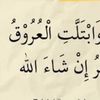 وَابْتَلَّتِ الْعُرُوْقُ
رُ إِنْ شَاءَ الله